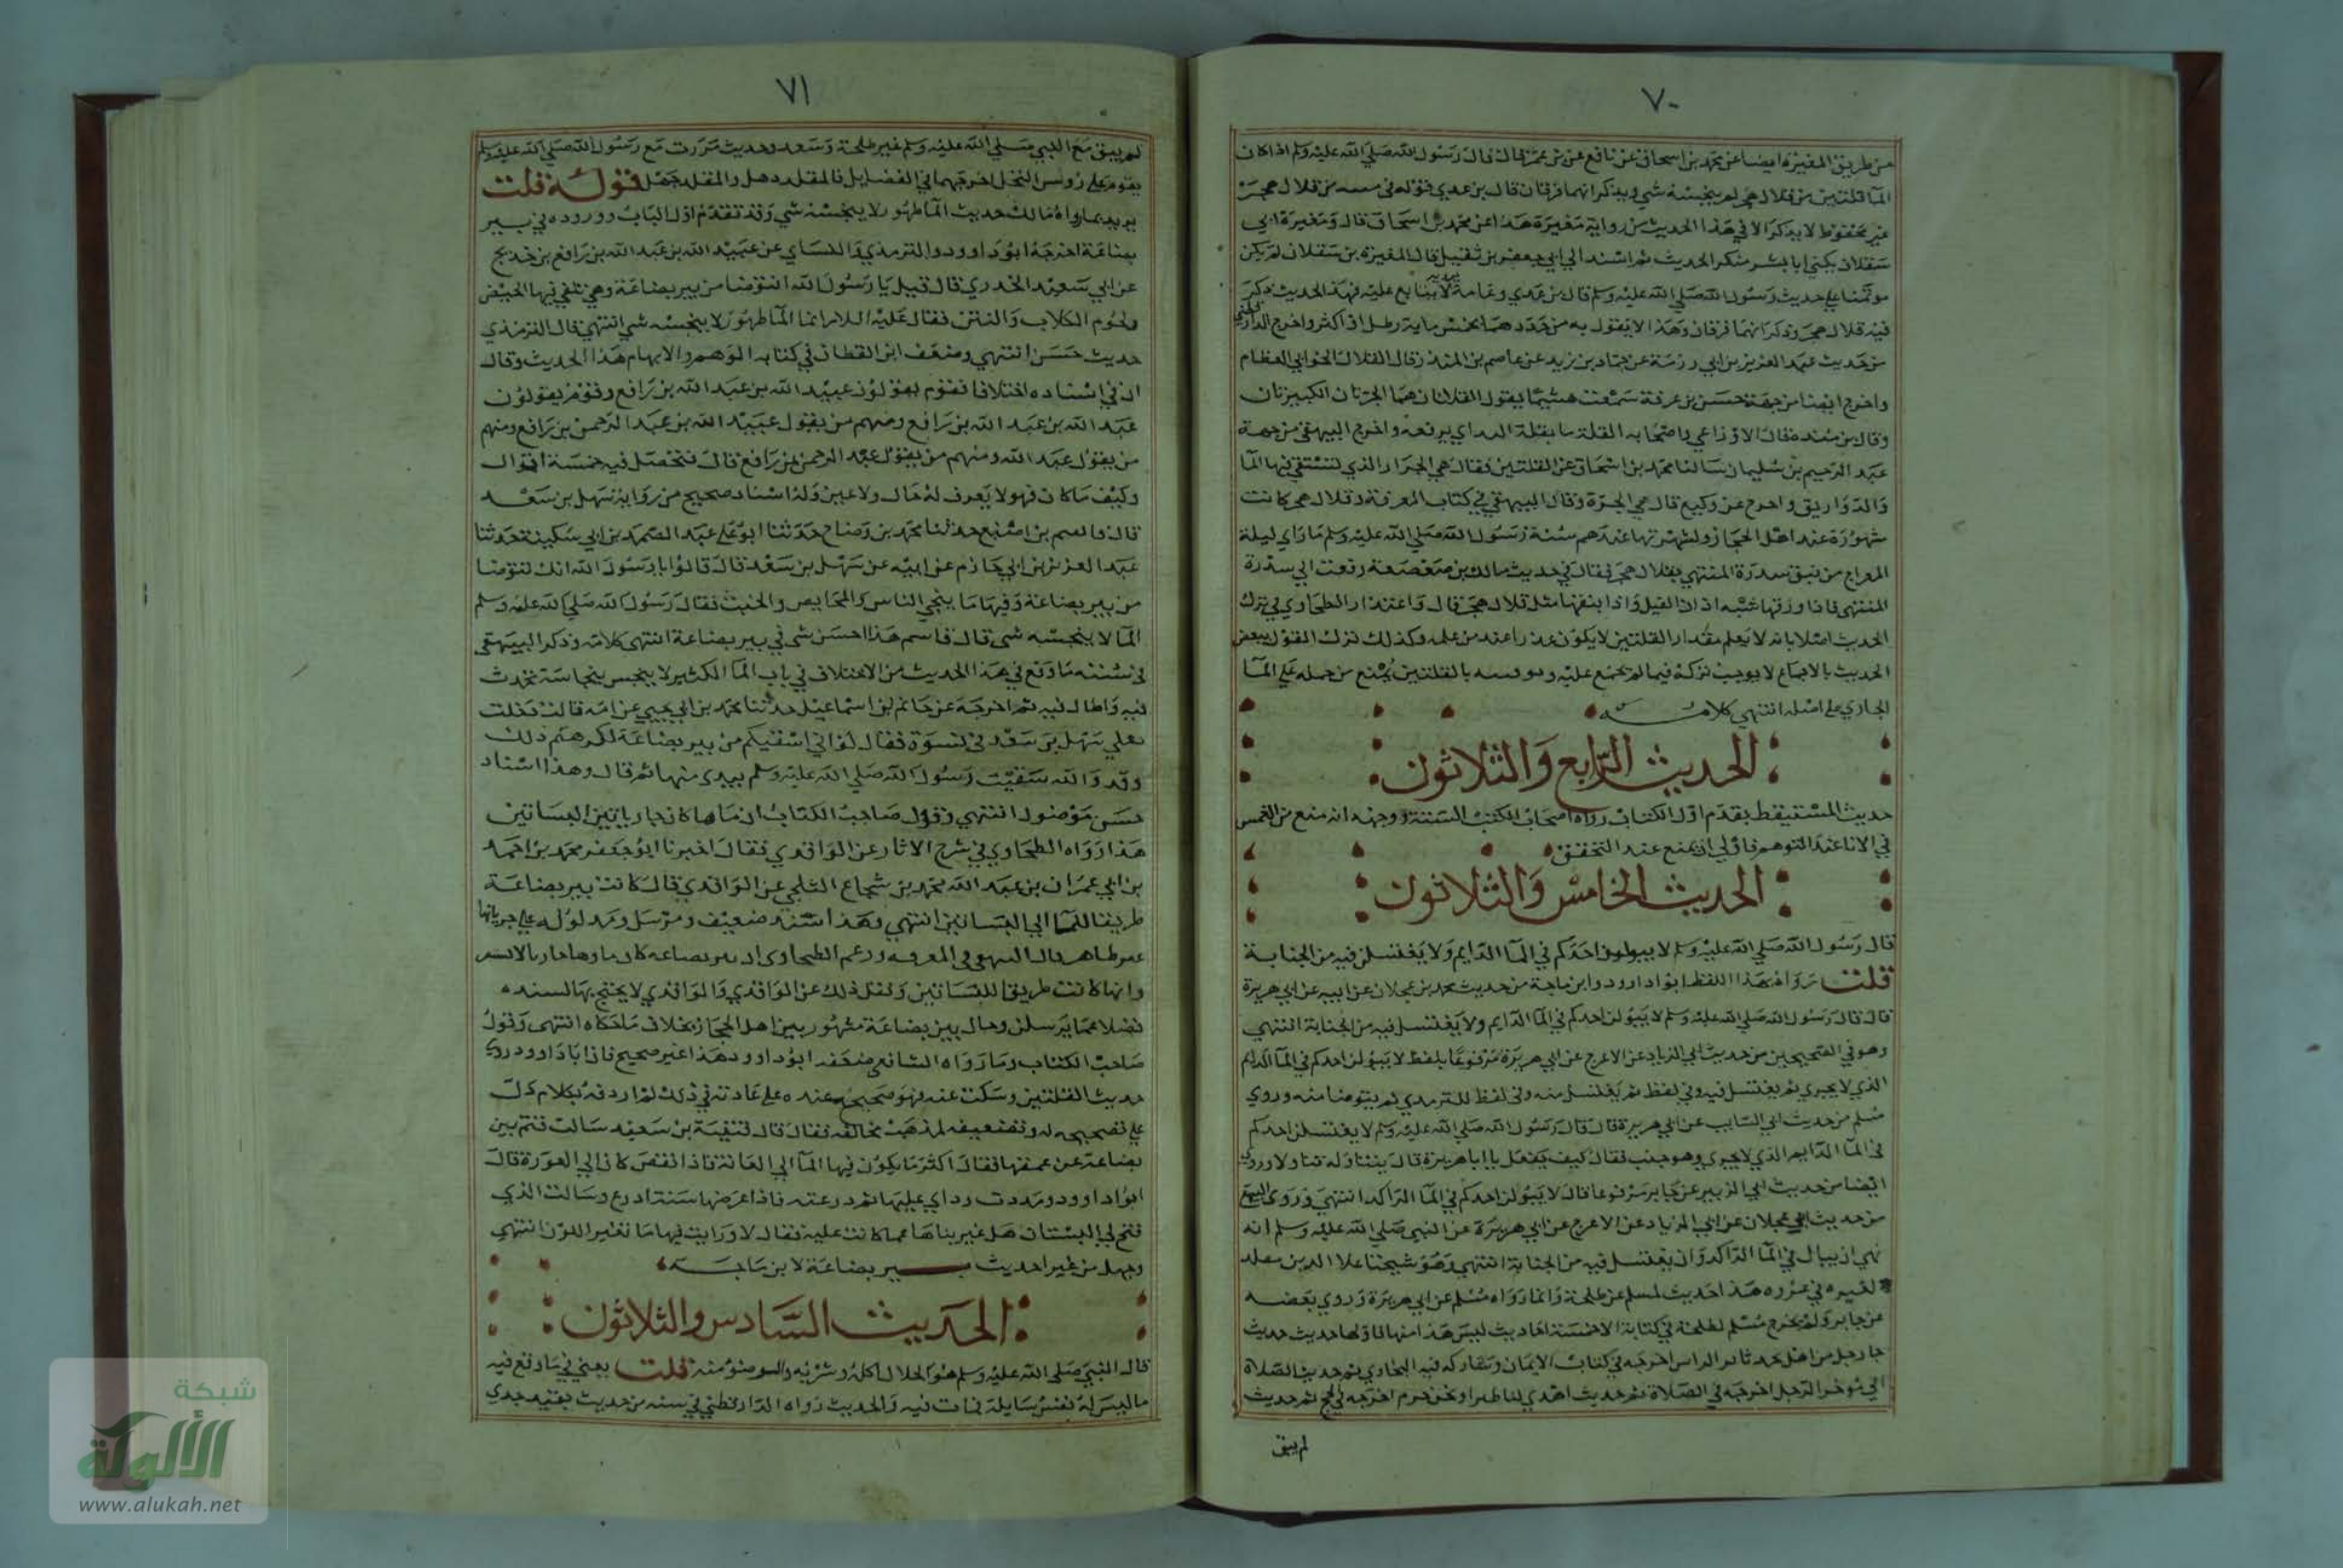 ٧٠
من طريق المغيرة ايضا عن محمد بن اسحاق عن نافع عن بن عمر قال قال رسول الله صلي الله عليه وسلم اذا كان
الما قلتين من قلال هجر لم ينجسه شي ويذكر انهما فرقان قال بن عدي قوله في من قلال هجر
غير محفوظ لا يذكر الا في هذا الحديث من رواية مغيرة هذا عن محمد بن اسحاق قال ومغيرة ابي
سقلاب يكني ابا بشر منكر الحديث ثم اسند الي ابي جعفر بن نفيل قال المغيرة بن سقلاب لم يكن
موتمنا علي حديث رسول الله صلي الله عليه وسلم قال بن عدي وعامة لا يتابع عليه فهذا الحديث ذكر
فيه قلال هجر وذكر انهما فرقان وهذا لا يقول به من حدد هما بخمس ماية رطل او اكثر واخرج الدارقطني
من حديث عبد العزيز بن ابي رزمة عن حماد بن زيد عن عاصم بن المنذر قال القلال الخوابي العظام
واخرج ايضا من جهة حسن بن عرفة سمعت هشيما يقول القلتان هما الجرتان الكبيرتان
وقال بن منده قال الاوزاعي واصحابه القلة ما يقله اليد اي يرفعه واخرج البيهقي من جهة
عبد الرحيم بن سليمان سالنا محمد بن اسحاق عن القلتين فقال هي الجرار الذي تستقي فيها الما
والدواريق واخرج عن وكيع قال هي الجرة وقال البيهقي في كتاب المعرفة وقلال هجر كانت
مشهورة عند اهل الحجاز ولشهرتها عندهم شبه رسول الله صلي الله عليه وسلم ما راي ليلة
المعراج من نبق سدرة المنتهي بقلال هجر فقال في حديث مالك بن صعصعة رفعت الي سدرة
المنتهي فاذا ورقها شبه اذان الفيل واذا نبقها مثل قلال هجر قال واعتذار الطحاوي في ترك
الحديث اصلا بانه لا يعلم مقدار القلتين لا يكون عذرا عند من علمه وكذلك ترك القول ببعض
الحديث بالاجماع لا يوجب تركه فيما لم يجمع عليه بالقلتين يمنع من حمله علي الما
الجاري علي اصله انتهي كلامه
الحديث الرابع والثلاثون
حديث المستيقظ تقدم اول الكتاب رواه اصحاب الكتب الستة ووجهه انه منع من الغمس
في الانا عند التوهم فاولي ان يمنع عند التحقق
الحديث الخامس والثلاثون
قال رسول الله صلي الله عليه وسلم لا يبولن احدكم في الما الدايم ولا يغتسلن فيه من الجنابة
قلت رواه بهذا اللفظ ابو داوود وابن ماجة من حديث محمد بن عجلان عن ابيه عن ابي هريرة
قال قال رسول الله صلي الله عليه وسلم لا يبولن احدكم في الما الدايم ولا يغتسل فيه من الجنابة انتهي
وهو في الصحيحين من حديث ابي الزناد عن الاعرج عن ابي هريرة مرفوعا بلفظ لا يبولن احدكم في الما الدايم
الذي لا يجري ثم يغتسل فيه وفي لفظ ثم يغتسل منه وفي لفظ للترمدي ثم يتوضا منه وروي
مسلم من حديث ابي السايب عن ابي هريرة قال قال رسول الله صلي الله عليه وسلم لا يغتسلن احدكم
في الما الدايم الذي لا يجري وهو جنب فقال كيف يفعل يا ابا هريرة قال يتناوله تناولا وروي
ايضا من حديث ابي الزبير عن جابر مرفوعا قال لا يبولن احدكم في الما الراكد انتهي وروي البيهقي
من حديث ابن عجلان عن ابي الزناد عن الاعرج عن ابي هريرة عن النبي صلي الله عليه وسلم انه
نهي ان يبال في الما الراكد وان يغتسل فيه من الجنابة انتهي وهو شيخنا علا الدين مقلد
لغيره في عزوه هذا حديث لمسلم عن طلحة وانما رواه مسلم عن ابي هريرة وروي بعضه
عن جابر ولم يخرج مسلم لطلحة في كتابه الا خمسة احاديث ليس هذا منها اولها حديث
جا رجل من اهل نجد ثاير الراس اخرجه في كتاب الايمان وشاركه فيه البخاري ثم حديث الصلاة
الي موخر الرحل اخرجه في الصلاة ثم حديث اهدي لنا طير ونحن حرم اخرجه في الحج ثم حديث
لم يبق
٧١
لم يبق مع النبي صلي الله عليه وسلم غير طلحة وسعد وحديث مررت مع رسول الله صلي الله عليه وسلم
بقوم علي روس النخل اخرجهما في الفضايل فالمقلد ذهل والمقلد جهل قوله قلت
يريد بما رواه مالك حديث الما طهور لا ينجسه شي وقد تقدم اول الباب ووروده في بير
بضاعة اخرجه ابو داوود والترمذي والنساي عن عبيد الله بن عبد الله بن رافع بن خديج
عن ابي سعيد الخدري قال قيل يا رسول الله انتوضا من بير بضاعة وهي تلقي فيها الحيض
ولحوم الكلاب والنتن فقال عليه السلام انما الما طهور لا ينجسه شي انتهي قال الترمذي
حديث حسن انتهي وضعف ابن القطان في كتابه الوهم والايهام هذا الحديث وقال
ان في اسناده اختلافا فقوم يقولون عبيد الله بن عبد الله بن رافع وقوم يقولون
عبد الله بن عبد الله بن رافع ومنهم من يقول عبيد الله بن عبد الرحمن بن رافع ومنهم
من يقول عبد الله ومنهم من يقول عبد الرحمن بن رافع قال فتحصل فيه خمسة اقوال
وكيف ما كان فهو لا يعرف له حال ولا عين وله اسناد صحيح من رواية سهل بن سعد
قال قاسم بن اصبغ حدثنا محمد بن وضاح حدثنا ابو علي عبد الصمد بن ابي سكينة حدثنا
عبد العزيز بن ابي حازم عن ابيه عن سهل بن سعد قال قالوا يا رسول الله انك تتوضا
من بير بضاعة وفيها ما ينجي الناس والمحايض والخبث فقال رسول الله صلي الله عليه وسلم
الما لا ينجسه شي قال قاسم هذا احسن شي في بير بضاعة انتهي كلامه وذكر البيهقي
في سننه ما وقع في هذا الحديث من الاختلاف في باب الما الكثير لا ينجس بنجاسة تحدث
فيه واطال فيه ثم اخرجه عن حاتم بن اسماعيل حدثنا محمد بن ابي يحيي عن امه قالت دخلت
علي سهل بن سعد في نسوة فقال لو اني اسقيكم من بير بضاعة لكرهتم ذلك
وقد والله سقيت رسول الله صلي الله عليه وسلم بيدي منها ثم قال وهذا اسناد
حسن موصول انتهي وقول صاحب الكتاب ان ماها كان جاريا بين البساتين
هذا رواه الطحاوي في شرح الاثار عن الواقدي فقال اخبرنا ابو جعفر محمد بن احمد
بن ابي عمران بن عبد الله محمد بن شجاع الثلجي عن الواقدي قال كانت بير بضاعة
طريقا للما الي البساتين انتهي وهذا سند ضعيف ومرسل ومدلوله علي جريانها
غير ظاهر قال البيهقي في المعرفة وزعم الطحاوي ان بير بضاعة كان ماوها جاريا لا يستقر
وانها كانت طريقا للبساتين ونقل ذلك عن الواقدي والواقدي لا يحتج بها لسنده
فضلا عما يرسله وحال بير بضاعة مشهور بين اهل الحجاز بخلاف ما حكاه انتهي وقول
صاحب الكتاب وما رواه الشافعي ضعفه ابو داوود هذا غير صحيح فان ابا داوود روي
حديث القلتين وسكت عنه فهو صحيح عنده علي عادته في ذلك ثم اردفه بكلام دل
علي تصحيحه له وتضعيفه لمذهب مخالفه فقال قال قتيبة بن سعيد سالت قيم بير
بضاعة عن عمقها فقال اكثر ما يكون فيها الما الي العانة فاذا انقص كان الي العورة قال
ابو داوود ومددت رداي عليها ثم درعته فاذا عرضها ستة ادرع وسالت الذي
فتح لي البستان هل غير بناها عما كانت عليه فقال لا ورايت فيها ما تغير اللون انتهي
وجهل من عير احديث بير بضاعة لابن ماجة
الحديث السادس والثلاثون
قال النبي صلي الله عليه وسلم هو الحلال اكله وشربه والوضو منه قلت يعني في ما وقع فيه
ما ليس له نفس سايلة فمات فيه والحديث رواه الدارقطني في سننه من حديث بقية حدثي
شبكة
الألوكة
www.alukah.net